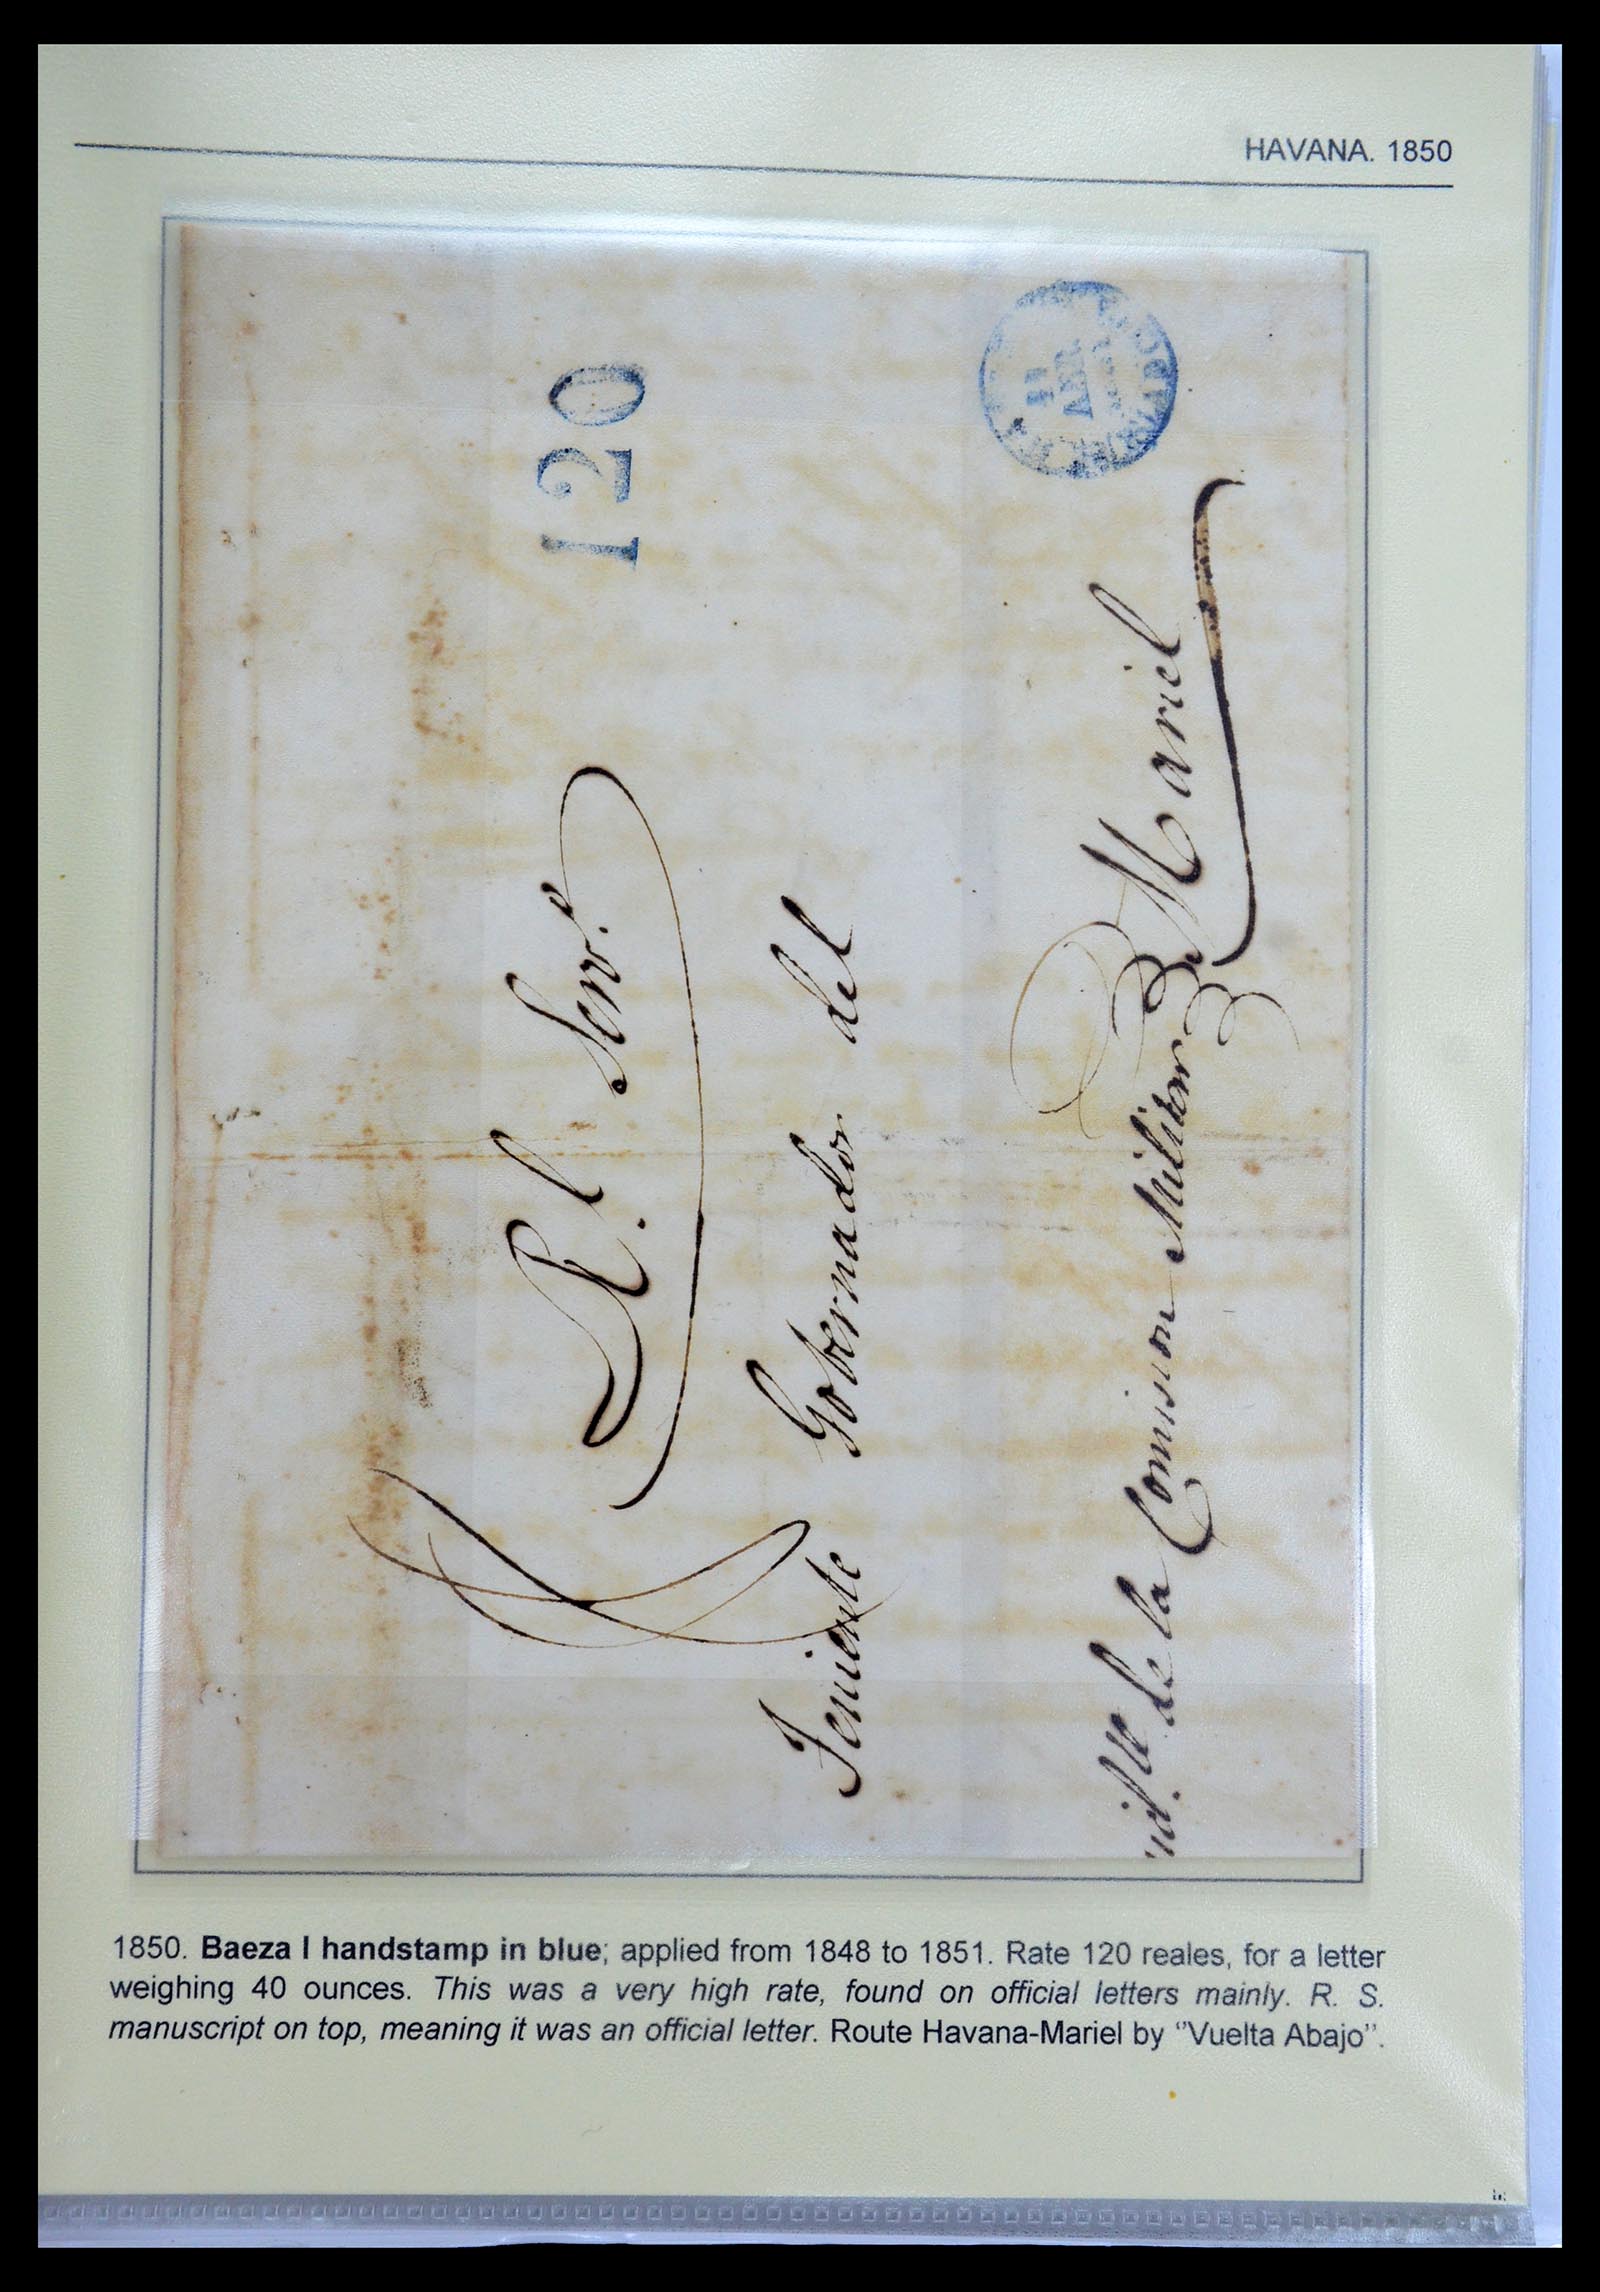 HAVANA. 1850
120
R.l Serv.o
Teniente Gobernador del
Mariel
de la Comision Militar
1850. Baeza I handstamp in blue; applied from 1848 to 1851. Rate 120 reales, for a letter
weighing 40 ounces. This was a very high rate, found on official letters mainly. R. S.
manuscript on top, meaning it was an official letter. Route Havana-Mariel by "Vuelta Abajo".